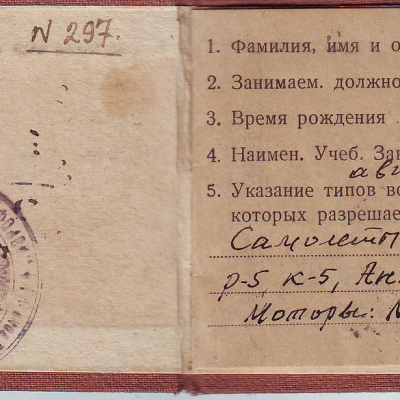 N 297.
1. Фамилия, имя и о
2. Занимаем. должно
3. Время рождения
4. Наимен. Учеб. Зав
ави
5. Указание типов во
которых разрешае
Самолеты
р-5, К-5, Ан
Моторы: М